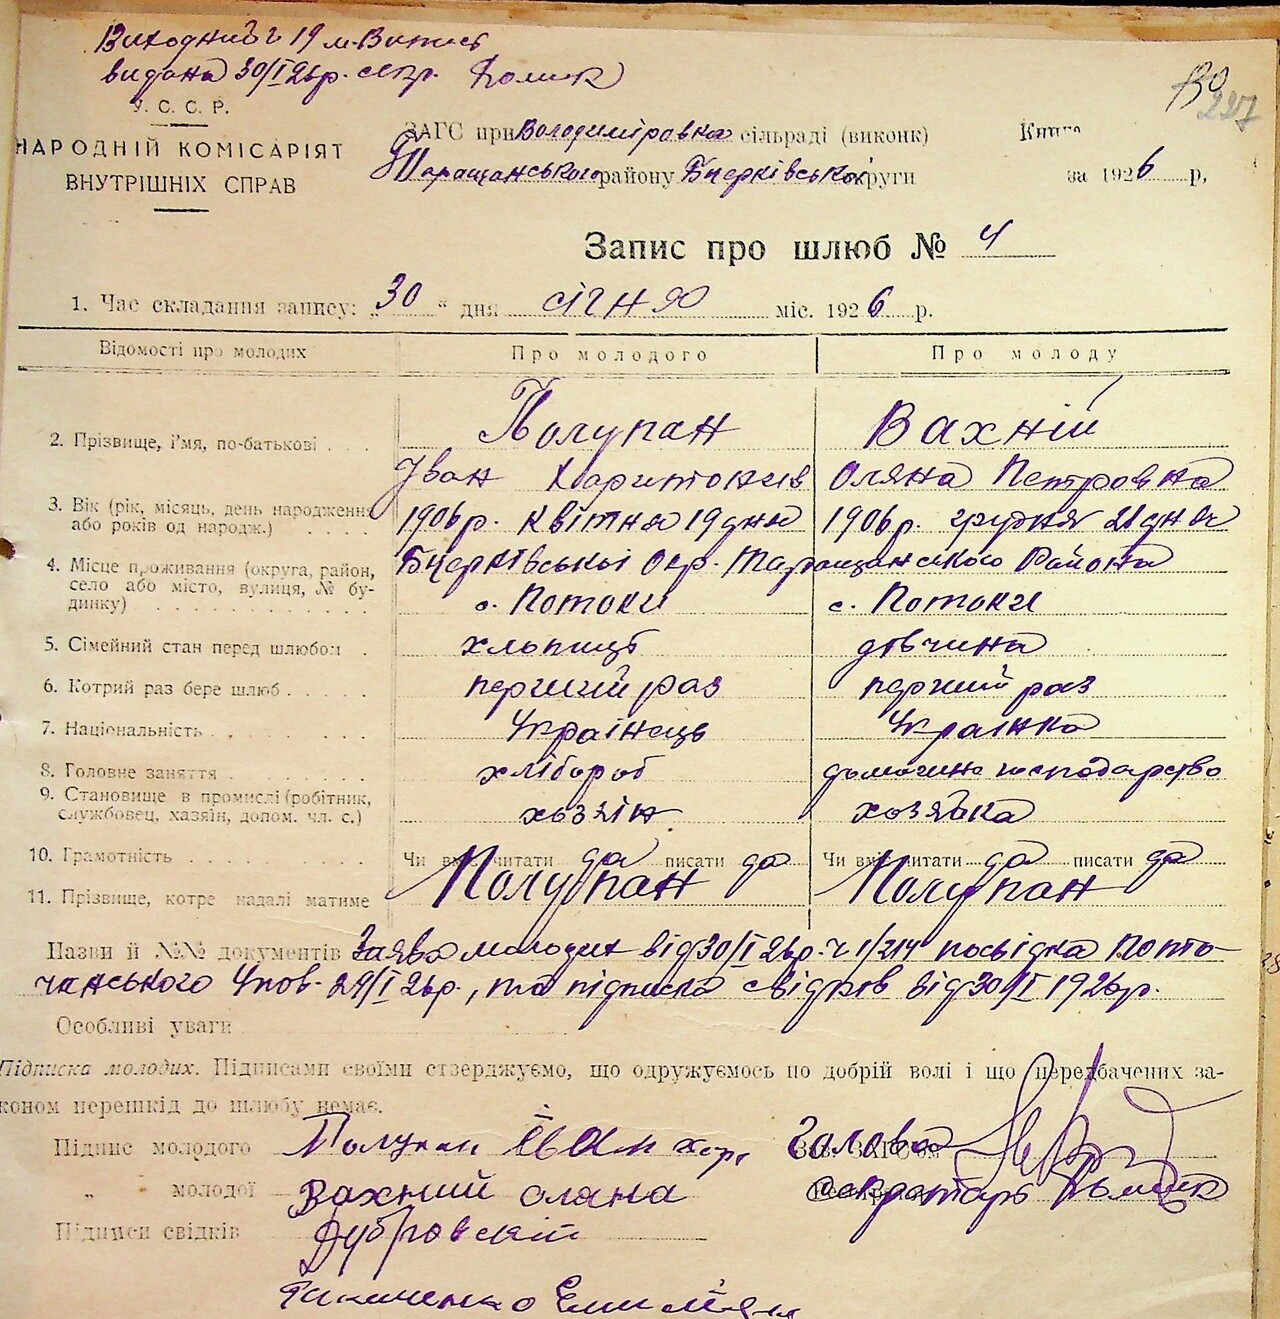 Виходний ч 19 м. Витяг
видана 30/I 26р. секр.
У. С. С. Р.
НАРОДНІЙ КОМІСАРІЯТ
ВНУТРІШНІХ СПРАВ
ЗАГС при Володиміравка сільраді (виконк)
Таращанського району Бцерківської округи
Книга
за 1926 р,
227
Запис про шлюб № 4
1. Час складання запису: „30“ дня січня міс. 1926 р.
Відомості про молодих Про молодого Про молоду
2. Прізвище, і'мя, по-батькові . . . Полупан Вахній
Іван Харитонів Оляна Петровна
3. Вік (рік, місяць, день народження або років од народж.) . . . . 1906р. Квітня 19 дня 1906р. грудня 21 дня
4. Місце проживання (округа, район, село або місто, вулиця, № будинку) Бцерківські Окр. Таращанського Района
с. Потоки с. Потоки
5. Сімейний стан перед шлюбом . хлопиць дівчина
6. Котрий раз бере шлюб . . . . . перший раз перший раз
7. Національність . . . . . . . Українець Українка
8. Головне заняття . . . . . . . хлібороб домашне господарство
9. Становище в промислі (робітник, службовец, хазяїн, допом. чл. с.) хозяін хозяйка
10. Грамотність . . . . . . . . Чи вміє читати да писати да Чи вміє читати да писати да
11. Прізвище, котре надалі матиме Полупан Полупан
Назви й №№ документів Заява молодих від 30/I 26р. ч 1/214 посвідка Пото-
чанського Упов. 29/I 26р., та підписка свідків від 30/I 1926р.
Особливі уваги
Підписка молодих. Підписами своїми стверджуємо, що одружуємось по добрій волі і що передбачених за-
коном перешкід до шлюбу немає.
Підпис молодого Полупан Іван хар, Голова
„ молодої Вахний олана Секретарь
Підписи свідків Дубровскій